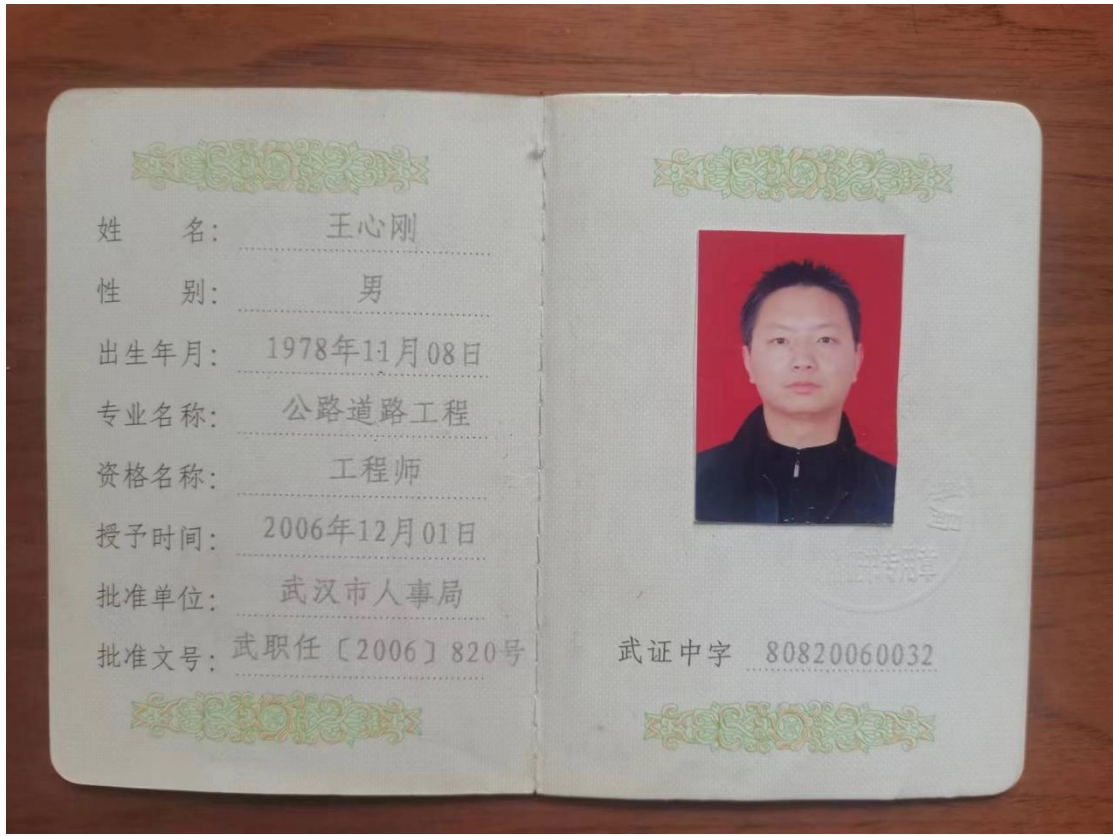 姓 名: 王心刚
性 别: 男
出生年月: 1978年11月08日
专业名称: 公路道路工程
资格名称: 工程师
授予时间: 2006年12月01日
批准单位: 武汉市人事局
批准文号: 武职任〔2006〕820号
证书专用章
武证中字 80820060032